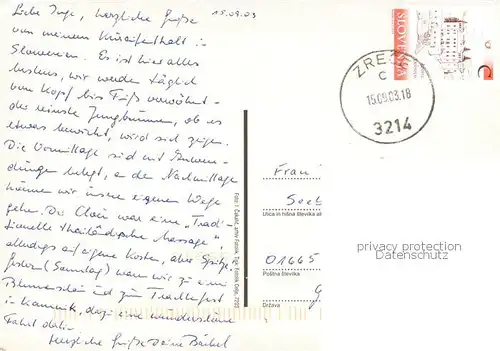 Liebe Inge, herzliche Grüße
15.09.03
von meinem Kuraufenthalt in
Slowenien. Es ist hier alles
bestens, wir werden täglich
von Kopf bis Fuß verwöhnt -
der reinste Jungbrunnen, ob es
etwas bewirkt, wird sich zeigen.
Die Vormittage sind mit Anwen-
dungen belegt, an den Nachmittagen
können wir unsere eigenen Wege
gehen. Der Clou war eine "Tradi-
tionelle thailändische Massage",
allerdings auf eigene Kosten, aber Spitze,
gestern (Samstag) waren wir zu einer
und zum Trachtenfest
in Kamnik, dazu eine wunderschöne
Fahrt dahin.
Herzliche Grüße Deine Bärbel
SLOVENIJA
C
ZREČE
C
15.09.03.18
3214
Frau
Seeb
Ulica in hišna številka
01665
Poštna številka
G
Država
privacy protection
Datenschutz